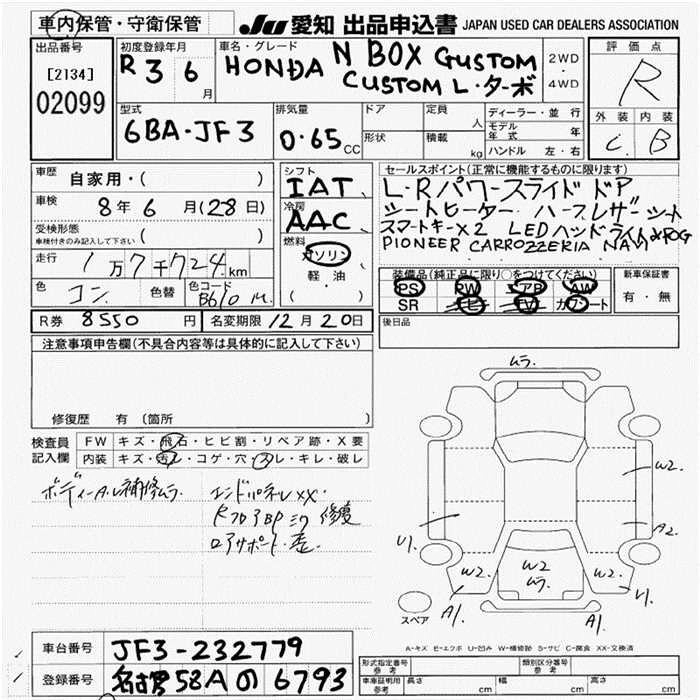 車内保管・守衛保管
JU 愛知 出品申込書 JAPAN USED CAR DEALERS ASSOCIATION
出品番号
[2134]
02099
初度登録年月
R 3 6月
車名・グレード
HONDA N BOX CUSTOM
CUSTOM L・ターボ
2WD
・
4WD
評価点
R
外装 内装
C B
型式
6BA-JF3
排気量
0.65 CC
ドア
形状
定員 人
積載 kg
ディーラー・並行
モデル年式 年
ハンドル 左・右
車歴
自家用・( )
車検
8年6月(28日)
受検形態
車検付きのみ記入して下さい ( )
走行
1万7千724km
色 コン 色替 色コード B610M
シフト
IAT
冷房
AAC
燃料
ガソリン
軽・油
( )
セールスポイント(正常に機能するものに限ります)
L・Rパワースライドドア
シートヒーター ハーフレザーシート
スマートキーX2 LEDヘッドライト&FOG
PIONEER CARROZZERIA NAVI
装備品(純正品に限り○をつけてください)
PS PW エアB AW
SR ナビ TV カワシート
新車保証書
有・無
R券 8550円 名変期限 12月20日
後日品
注意事項申告欄(不具合内容等は具体的に記入して下さい)
修復歴 有(箇所
検査員
記入欄
FW キズ・飛石・ヒビ割・リペア跡・X要
内装 キズ・汚レ・コゲ・穴・スレ・キレ・破レ
ボディーA・U補修ムラ
エンドパネルXX・
RフロアBPミワ修復
ロアサポート歪
ムラ
W2
A2
U1
W2
W2
ムラ
W2
U1
A1
A1
スペア
A-キズ E-エクボ U-凹み W-補修跡 S-サビ C-腐食 XX-交換済
車台番号 JF3-232779
登録番号 名古屋58Aの6793
形式指定番号
参考
類別区分番号
参考
車庫証明用
参考
長さ cm 幅 cm 高さ cm